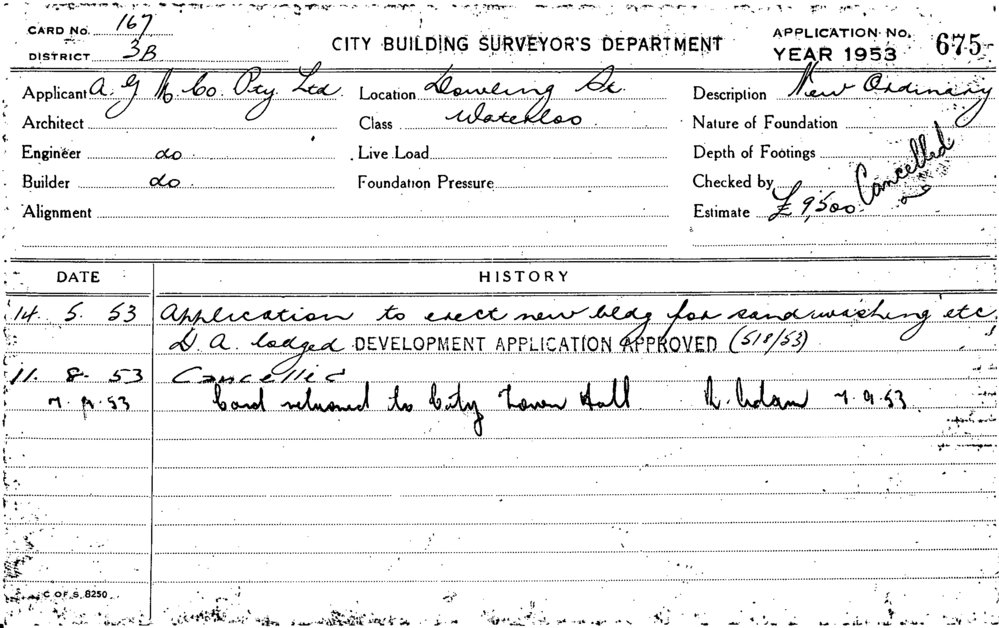 CARD No. 167
DISTRICT 3B
CITY BUILDING SURVEYOR'S DEPARTMENT
APPLICATION No. 675
YEAR 1953
Applicant A. G M Co. Pty Ltd. Location Dowling St. Description New Ordinary
Architect Class Waterloo Nature of Foundation
Engineer do Live Load Depth of Footings
Builder do Foundation Pressure Checked by
Alignment Estimate £9,500 Cancelled
DATE HISTORY
14. 5. 53 Application to erect new bldg for sandwashing etc.
D. A. lodged DEVELOPMENT APPLICATION APPROVED (518/53)
11. 8. 53 Cancelled
7. 9. 53 Card returned to City Town Hall 7. 9. 53
C OF S. 8250